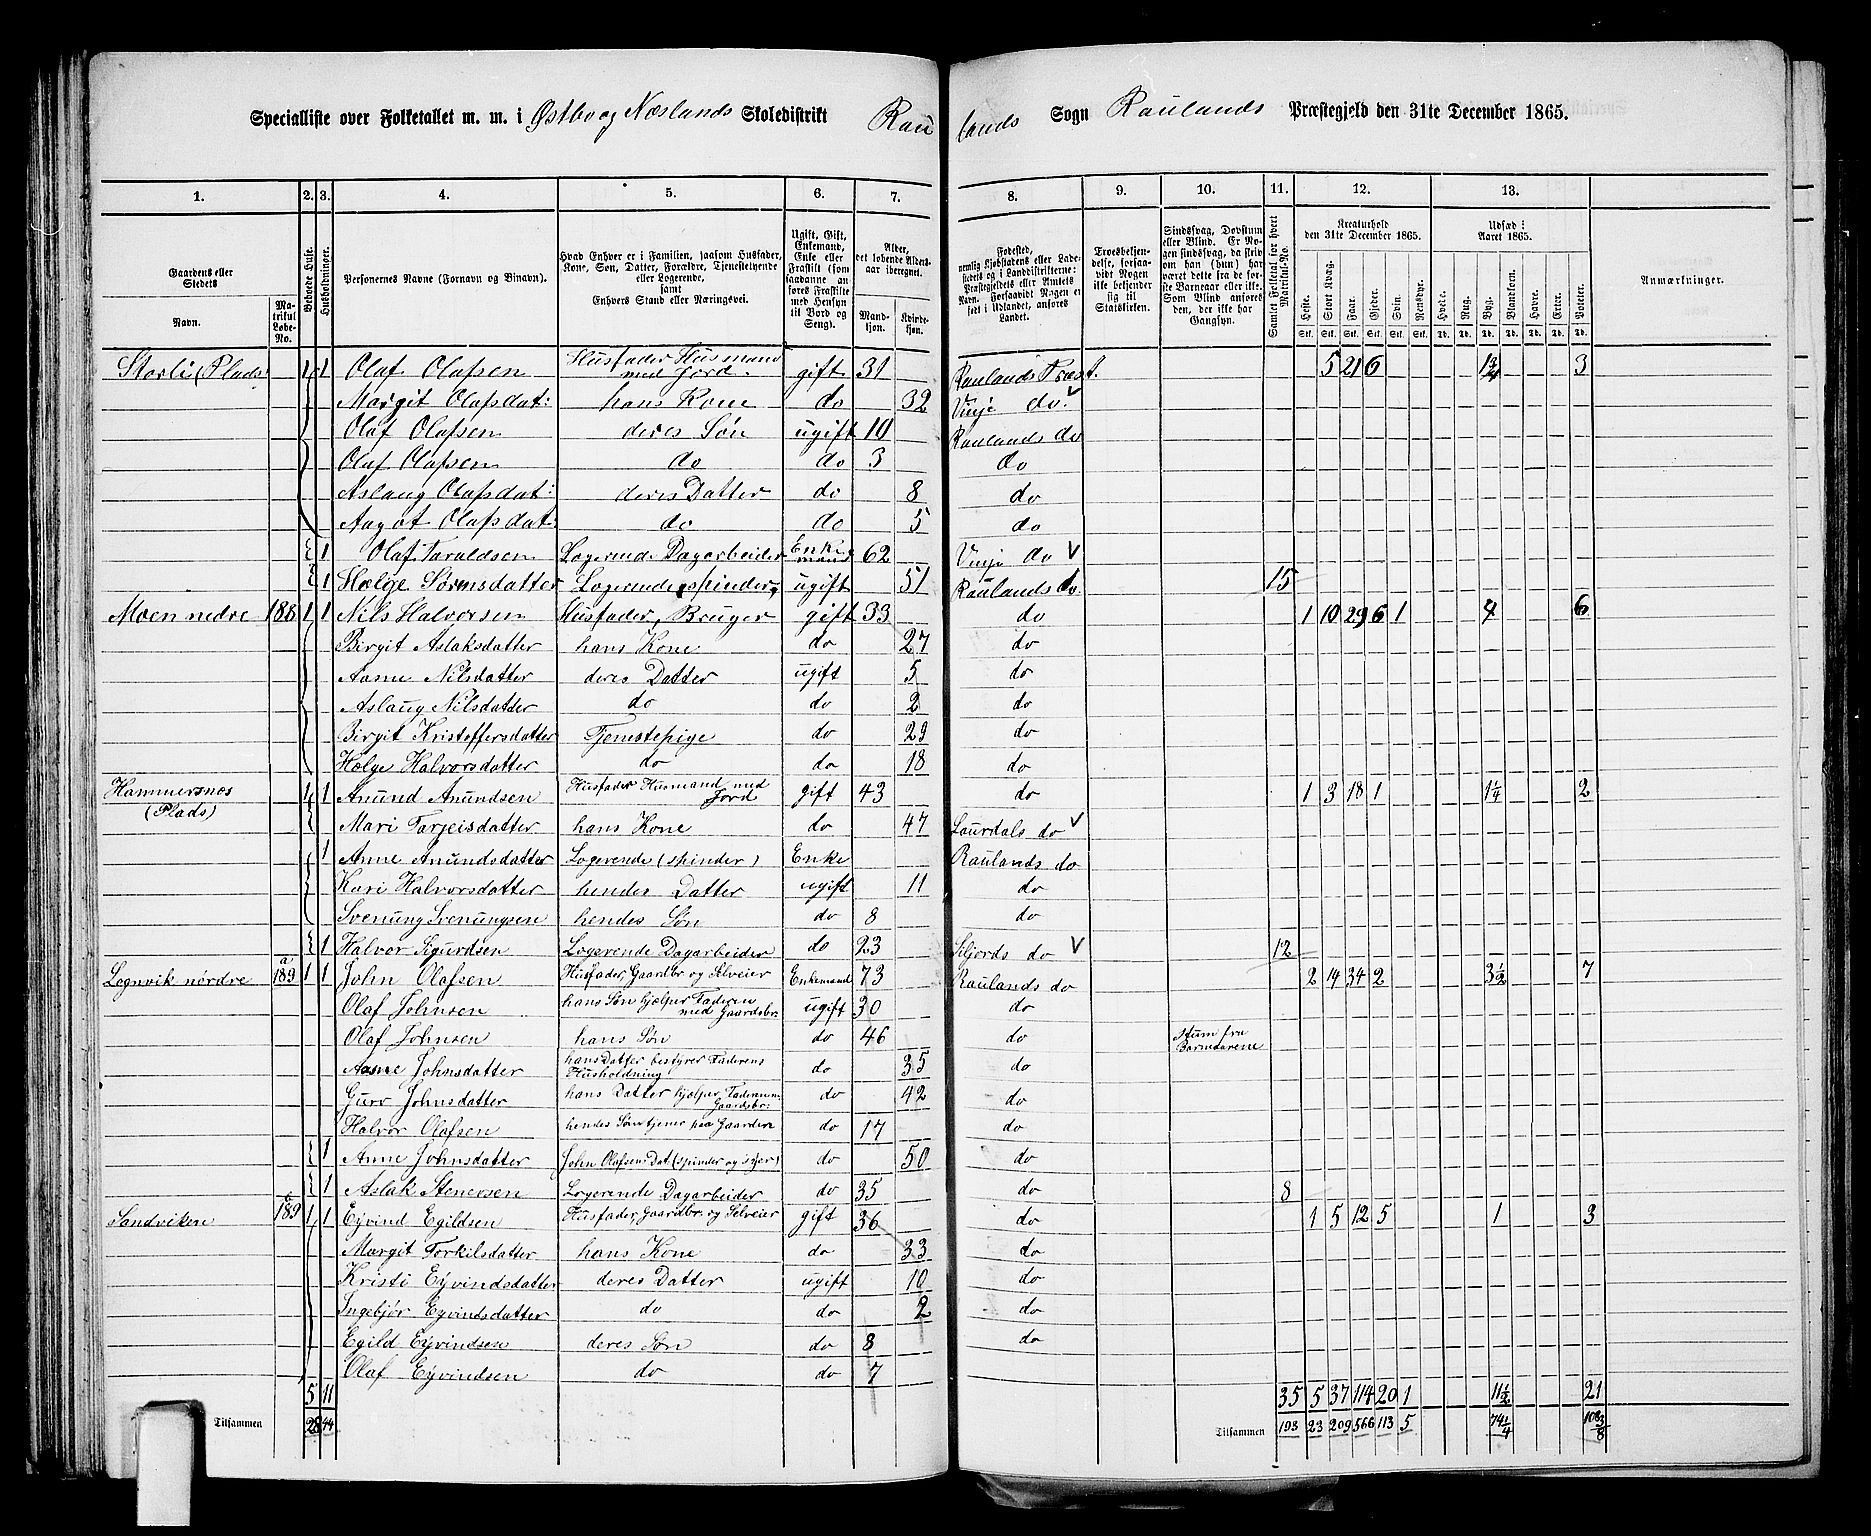 Specialliste over Folketallet m. m. i Østbo og Næslands Skoledistrikt Rau lands Sogn Raulands Præstegjeld den 31te December 1865.
1. 2. 3. 4. 5. 6. 7. 8. 9. 10. 11. 12. 13.
Gaardens eller Stedets Navn. Matrikul Løbe-No. Beboede Huse. Husholdninger. Personernes Navne (Fornavn og Binavn). Hvad Enhver er i Familien, saasom Husfader, Kone, Søn, Datter, Forældre, Tjenestetyende eller Logerende, samt Enhvers Stand eller Næringsvei. Ugift, Gift, Enkemand, Enke eller Fraskilt (saadanne anføres som Fraskilte med Hensyn til Bord og Seng). Alder, det løbende Aldersaar iberegnet. Mandkjøn. Kvindekjøn. Fødested, nemlig Kjøbstadens eller Ladestedets og i Landdistrikterne: Præstegjeldets eller Amtets Navn. Forsaavidt Nogen er født i Udlandet, anføres Landet. Troesbekjendelse, forsaavidt Nogen ikke bekjender sig til Statskirken. Sindssvag, Døvstum eller Blind. Er Nogen sindssvag, da skrives om han (hun) har været dette fra de første Barneaar eller ikke. Som Blind anføres den, der ikke har Gangsyn. Samlet Folketal for hvert Matrikul-No. Kreaturhold den 31te December 1865. Heste. Stort Kvæg. Faar. Gjeder. Svin. Rensdyr. Udsæd i Aaret 1865. Hvede. Rug. Byg. Blandkorn. Havre. Erter. Poteter. Anmærkninger.
Storli (Plads) 1 1 Olaf Olafsen Husfader Husmand med Jord gift 31 Raulands Præst. 5 21 6 1¾ 3
Margit Olafsdat: hans Kone do 32 Vinje do. V
Olaf Olafsen deres Søn ugift 10 Raulands do
Olaf Olafsen do do 3 do
Aslaug Olafsdat: deres Datter do 8 do
Aagot Olafsdat: do do 5 do
1 Olaf Taraldsen Logerende Dagarbeider Enkemand 62 Vinje do V
1 Hælge Sørensdatter Logerende, spinder, ugift 51 Raulands do. 15
Moen nedre 188 1 1 Nils Halvorsen Husfader, Bruger gift 33 do 1 10 29 6 1 4 6
Birgit Aslaksdatter hans Kone do 27 do
Aasne Nilsdatter deres Datter ugift 5 do
Aslaug Nilsdatter do do 2 do
Birgit Kristoffersdatter Tjenestepige do 29 do
Hælge Halvorsdatter do do 18 do
Hammersnæs (Plads) 1 1 Anund Anundsen Husfader Husmand med Jord gift 43 do 1 3 18 1 1¼ 2
Mari Tarjeisdatter hans Kone do 47 Laurdals do V
1 Anne Anundsdatter Logerende (spinder) Enke Raulands do
Kari Halvorsdatter hendes Datter ugift 11 do
Svenung Svenungsen hendes Søn do 8 do
1 Halvor Sigurdsen Logerende Dagarbeider do 23 Siljords do V 12
Lognvik nørdre 189 a 1 1 John Olafsen Husfader, Gaardbr. og Selveier Enkemand 73 Raulands do 2 14 34 2 3½ 7
Olaf Johnsen hans Søn hjælper Faderen med Gaardsbr. ugift 30 do
Olaf Johnsen hans Søn do 46 do stum fra Barndommen
Aasne Johnsdatter hans Datter bestyrer Faderens Husholdning do 35 do
Guro Johnsdatter hans Datter hjælper Faderen m. Gaardsbr: do 42 do
Halvor Olafsen hendes Søn tjener paa Gaarden do 17 do
1 Anne Johnsdatter John Olafsens Dat. (spinder og syer) do 50 do
1 Aslak Stenersen Logerende Dagarbeider do 35 do 8
Sandviken 189 1 1 Eyvind Egildsen Husfader, Gaardbr. og Selveier gift 36 do 1 5 12 5 1 3
Margit Torkilsdatter hans Kone do 33 do
Kristi Eyvindsdatter deres Datter ugift 10 do
Ingebjør Eyvindsdatter do do 2 do
Egild Eyvindsen deres Søn do 8 do
Olaf Eyvindsen do do 7
5 11 35 5 37 114 20 1 11½ 21
Tilsammen 28 44 Tilsammen 193 23 209 566 113 5 74¼ 108⅜